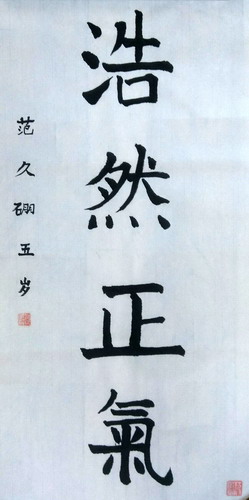 浩然正氣
范久硼五岁